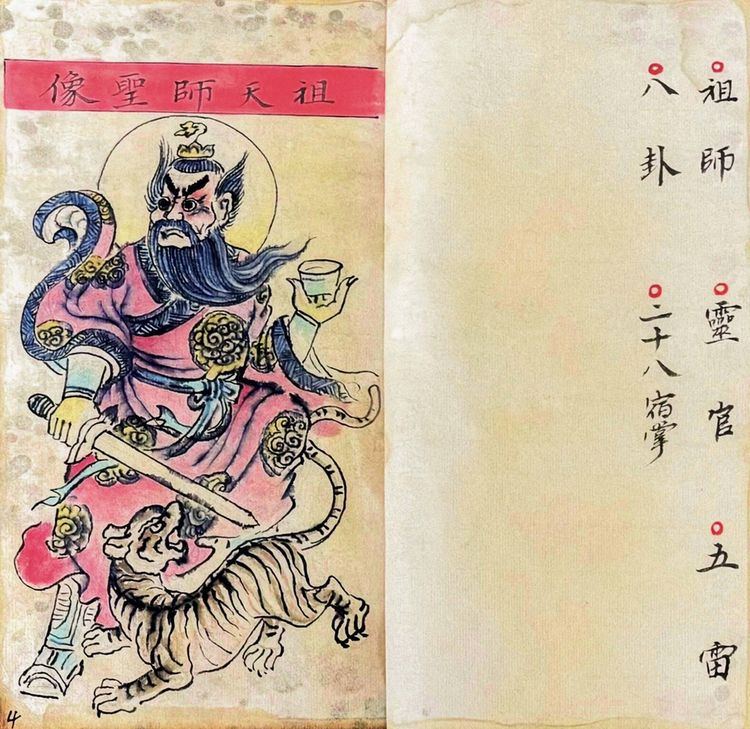 祖天師聖像
4
祖師 靈官 五雷
八卦 二十八宿掌